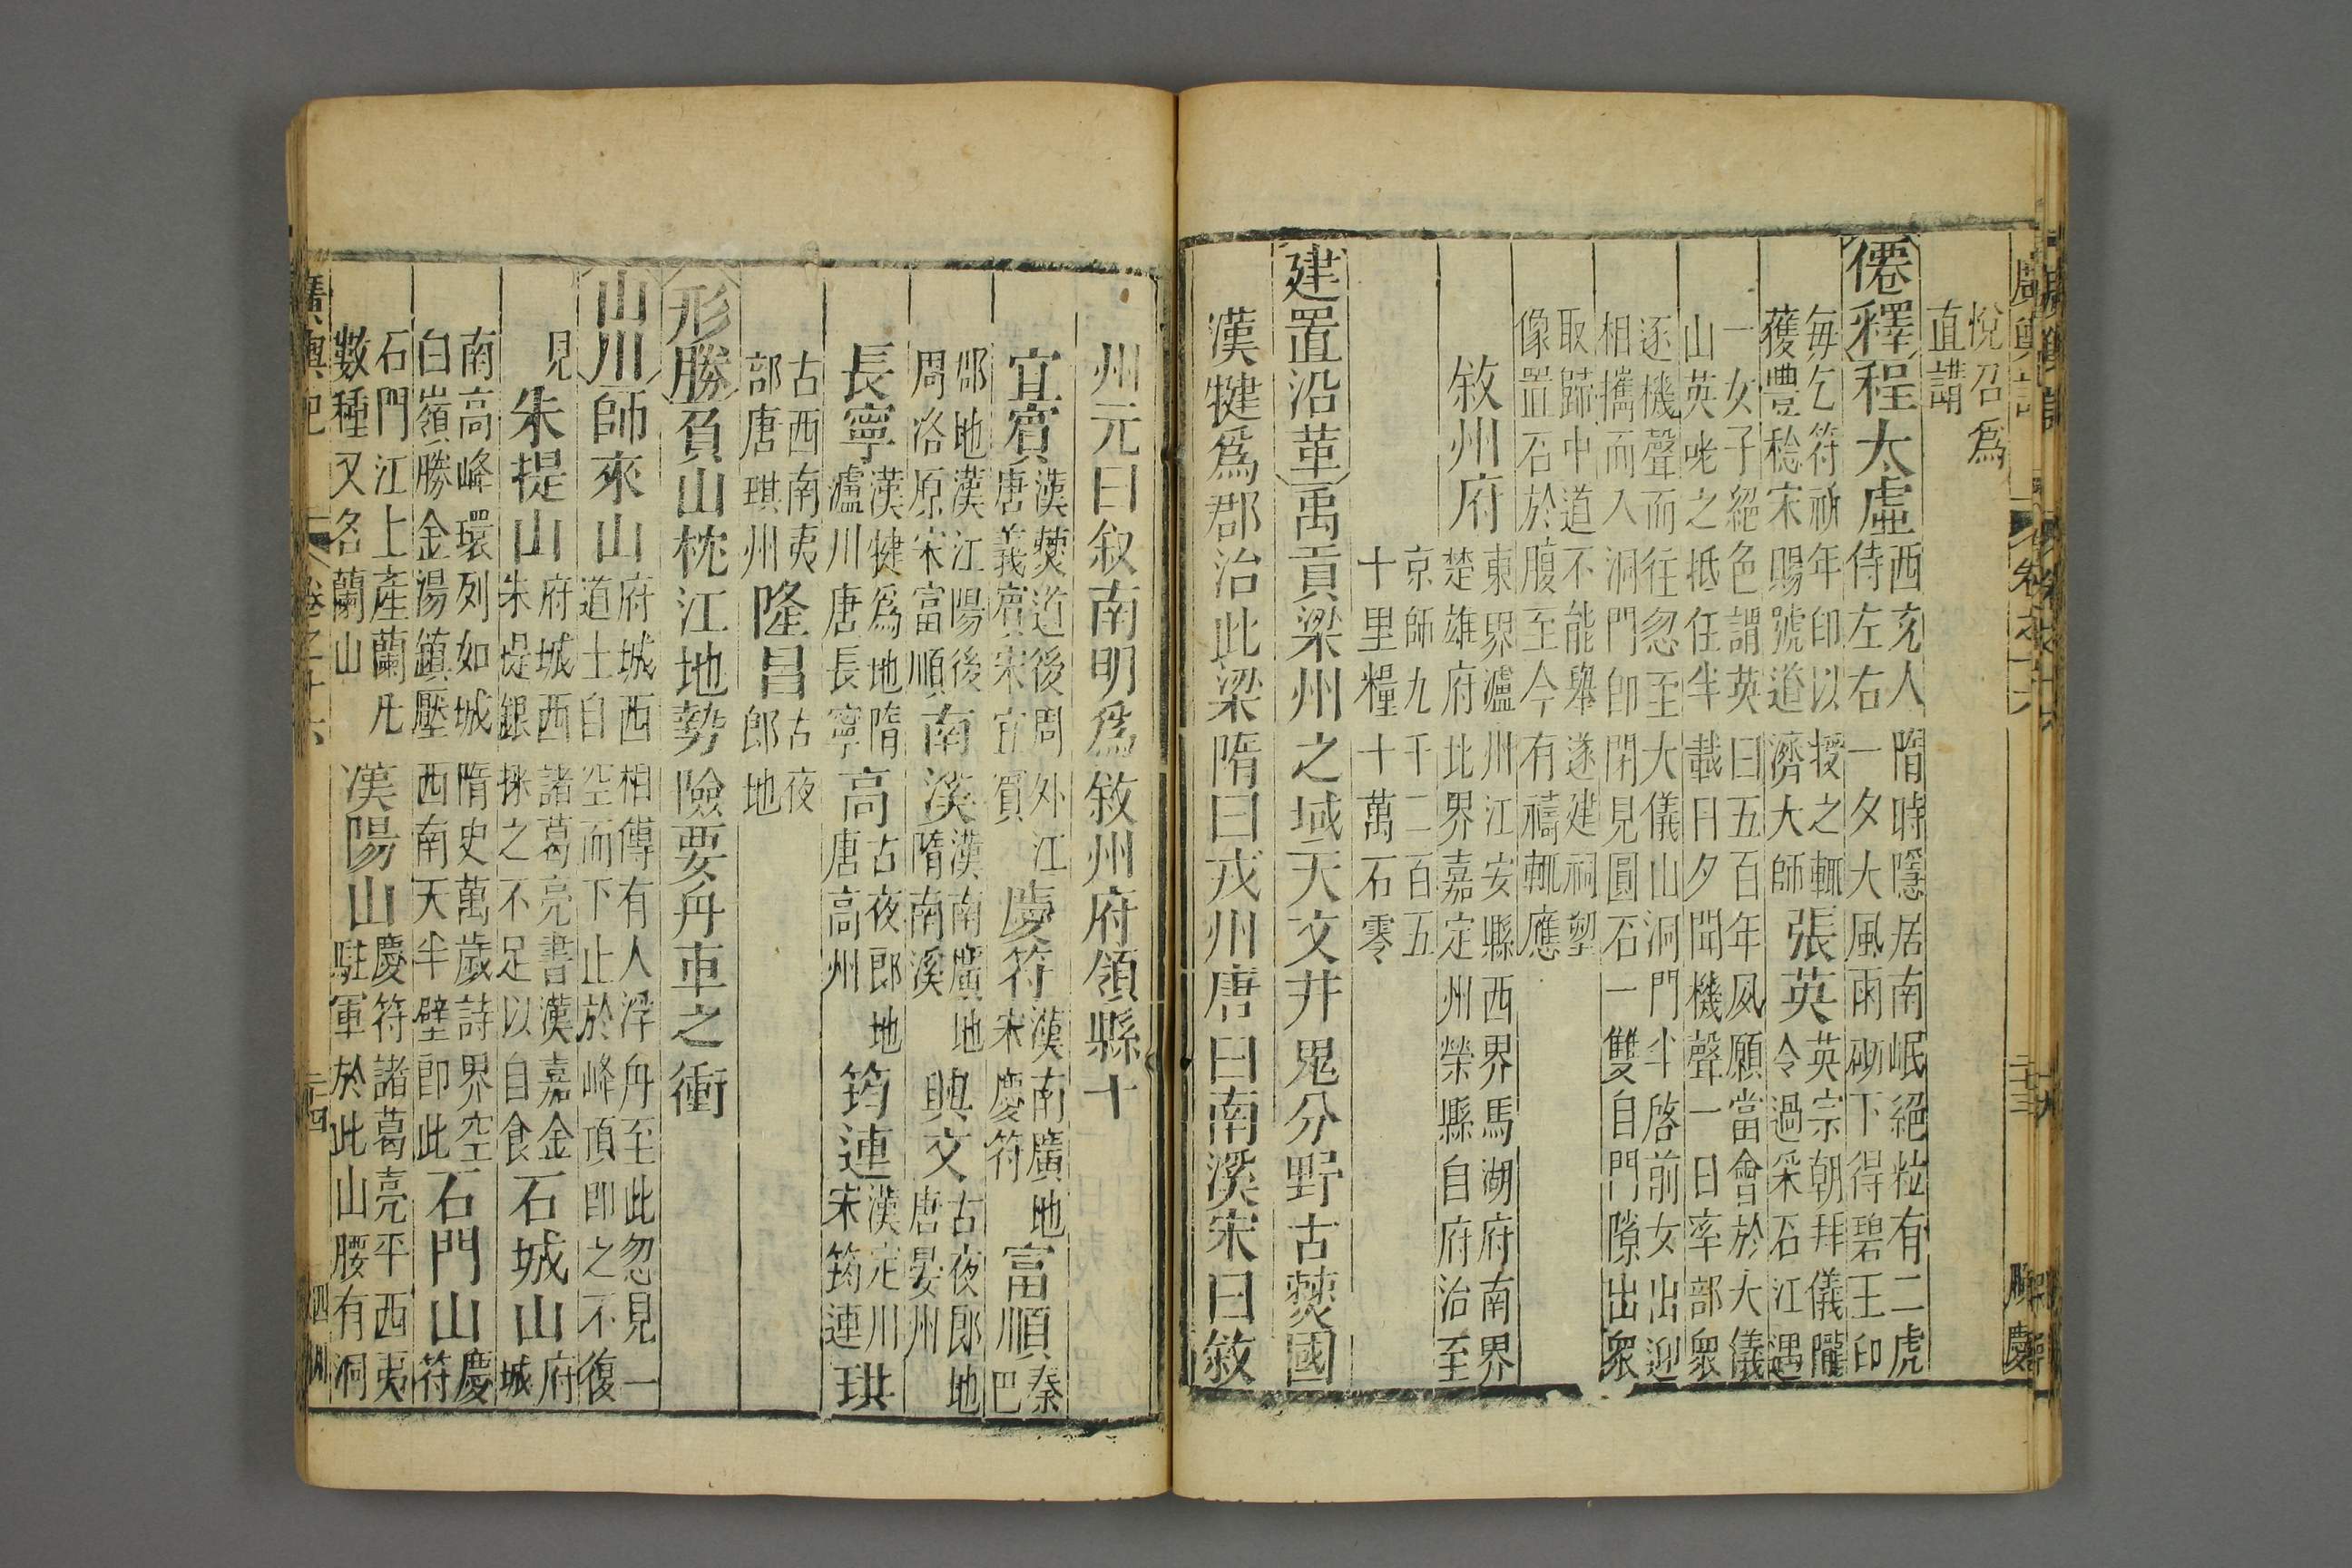 悅召爲
直講
僊釋程太虛西充人隋時隱居南岷絕粒有二虎
侍左右一夕大風雨砌下得碧玉印
每乞符祈年印以授之輒
獲豐稔宋賜號道濟大師張英英宗朝拜儀隴
令過采石江遇
一女子絕色謂英曰五百年夙願當會於大儀
山英咤之抵任半載日夕聞機聲一日率部衆
逐機聲而往忽至大儀山洞門半啓前女出迎
相攜而入洞門卽閉見圓石一雙自門隙出衆
取歸中道不能舉遂建祠塑
像置石於腹至今有禱輒應
敘州府東界瀘州江安縣西界馬湖府南界
楚雄府北界嘉定州榮縣自府治至
京師九千二百五
十里糧十萬石零
建置沿革禹貢梁州之域天文井鬼分野古僰國
漢犍爲郡治此梁隋曰戎州唐曰南溪宋曰敘
州元曰叙南明爲敘州府領縣十
宜賓漢僰道後周外江
唐義賓宋宜賓慶符漢南廣地
宋慶符富順秦
巴
郡地漢江陽後
周洛原宋富順南溪漢南廣地
隋南溪興文古夜郎地
唐晏州
長寧漢犍爲地隋
瀘川唐長寧高古夜郎地
唐高州筠連漢定川
宋筠連珙
古西南夷
部唐珙州隆昌古夜
郎地
形勝負山枕江地勢險要舟車之衝
山川師來山府城西相傳有人浮舟至此忽見一
道士自空而下止於峰頂卽之不復
見朱提山府城西諸葛亮書漢嘉金
朱提銀採之不足以自食石城山府
城
南高峰環列如城隋史萬歲詩界空
白嶺勝金湯鎮壓西南天半壁卽此石門山慶
符
石門江上產蘭凡
數種又名蘭山漢陽山慶符諸葛亮平西夷
駐軍於此山腰有洞
廣輿記
卷之十六
二十四
四川